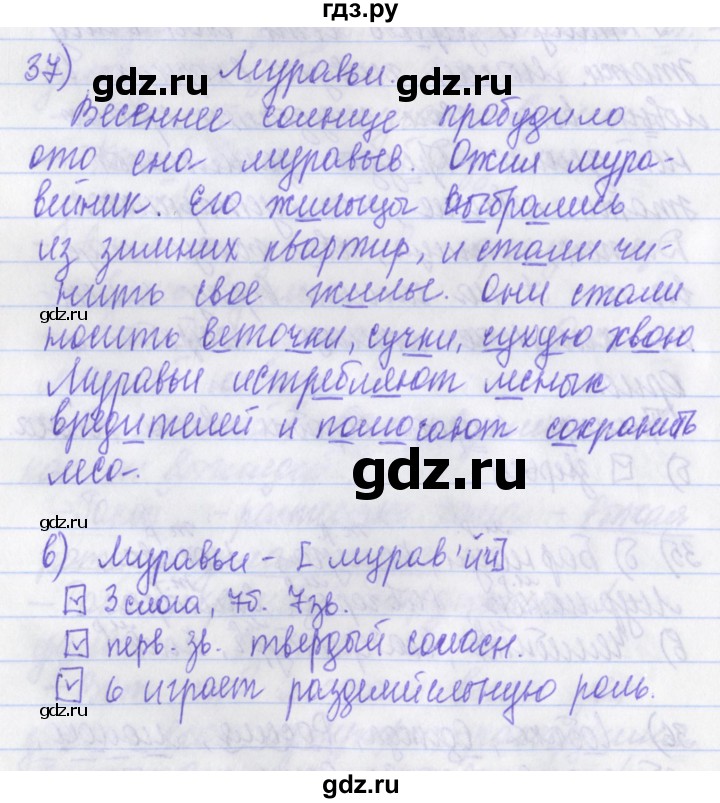 гдз.ру
37) Муравьи.
gdz.ru gdz.ru
Весеннее солнце пробудило
ото сна муравьев. Ожил мура-
вейник. Его жильцы выбрались
из зимних квартир, и стали чи-
нить свое жилье. Они стали
gdz.ru
носить веточки, сучки, сухую хвою.
Муравьи истребляют лесных
вредителей и помогают сохранить
леса.
gdz.ru
gdz.ru
в) Муравьи - [мурав'йи]
3 слога, 7б. 7зв.
перв. зв. твердый согласн.
ь играет разделительную роль.
gdz.ru
gdz.ru